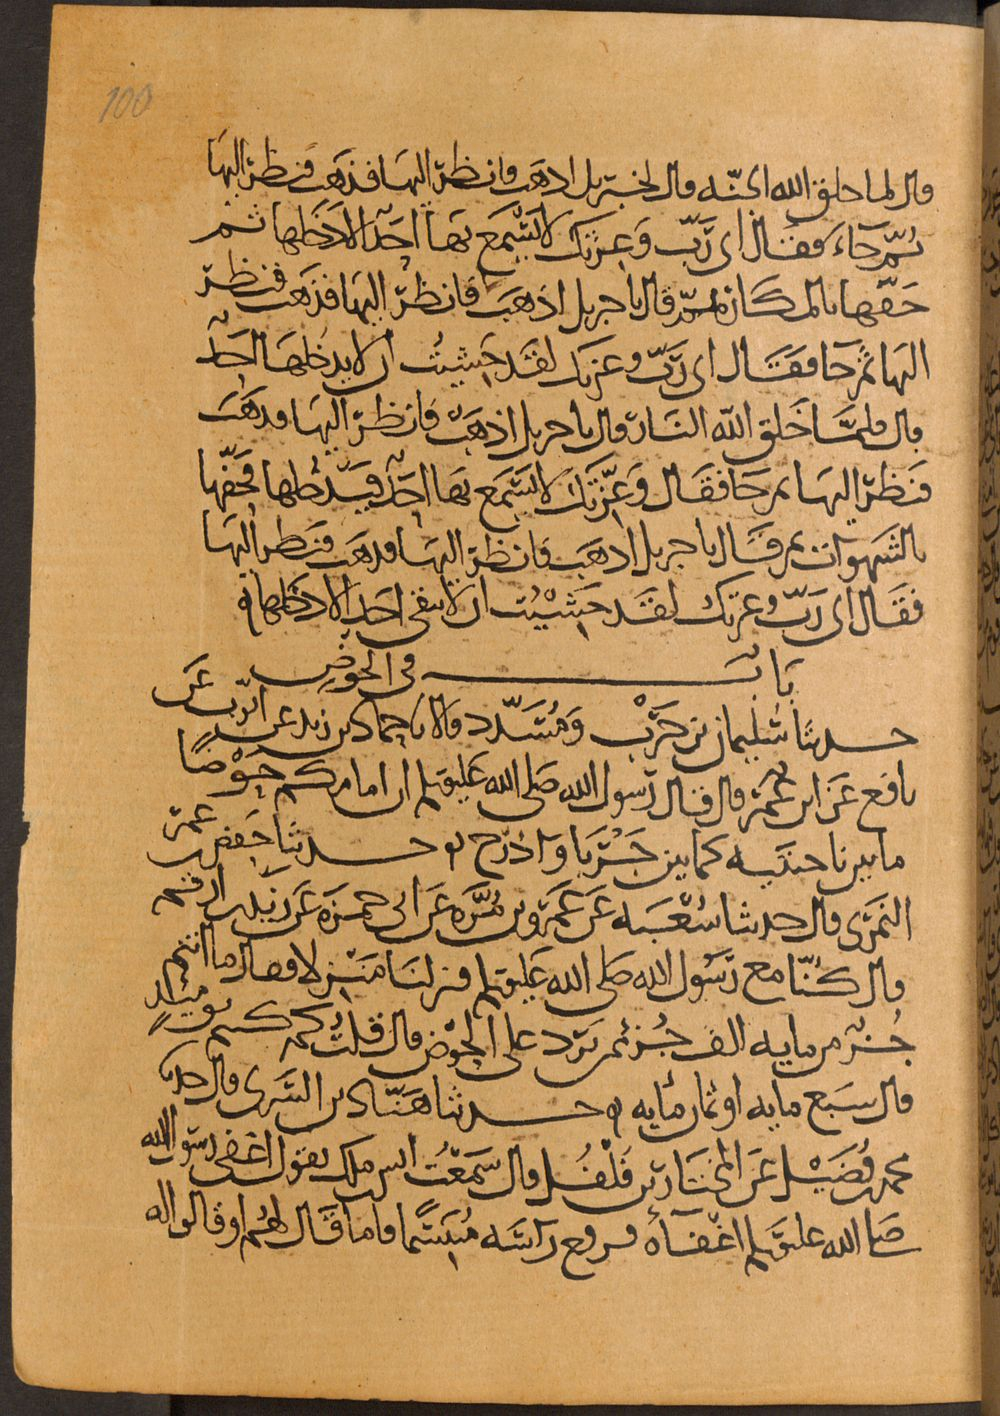 100
قال لما خلق الله الجنّه قال لجبريل اذهَب فانظرْ اليهَا فذهَب فنظرَ اليهَا
ثمّ جآءَ فقال اى رَبّ وَعِزتك لا يَسْمَع بهَا احَدٌ الا دَخلها ثم
حَفّها بالمكاره ثم قال يا جبريل اذهَبْ فانظرْ اليهَا فذهَب فنظرَ
اليهَا ثم جا فقَال اى ربّ وعزتك لقَد خشِيْتُ ان لا يدخلهَا احَدٌ
قال فلمَّا خَلق الله النَارَ قال يا جبريل اذهَبْ فانظرْ اليهَا فذهَبَ
فنَظرَ اليهَا ثم جَا فقَال وَعِزّتكَ لا يَسْمَع بهَا احَدٌ فيَدْخلها فحَفّها
بالشَهوات ثم قال يا جبريل اذهَب فانظرْ اليهَا فذهَبَ فنَظر اليهَا
فقَال اى رَبّ وعزتك لقَد خَشِيْتُ ان لا يبقى احَدٌ الا دَخلها ه
بَابٌ فى الحَوْضِ
حدثنا سُليمان بن حَرْب وَمُسَدّد قالا نا حماد بن زيد عن ايّوب عَن
نافع عَن ابن عُمَرَ قال قال رَسول الله صَلى الله عَليه وسلم ان امامكم حَوْضًا
ما بين ناحيتيه كما بين جَرْبَا وَاذرُح ه حدثنا حَفص بن عُمَرَ
النَمَرى قال حدثنا شعْبَه عَن عَمْرو بن مُرَّه عَن ابى حمزَه عَن زيد بن ارقم
قال كُنّا مع رَسُول الله صَلى الله عَليه وسلم فنزلنَا مَنْزِلا فقال ما انتم
جُزْءٌ من مايه الف جُزْءٍ ممن يَرِد على الحَوْض قال قلتُ كم كنتم يوميذٍ
قال سَبع مايه او ثمان مايه ه حدثنا هَنّاد بن السَرى قال حدثنا
محمد بن فُضَيْل عَن المخْتَار بن فُلْفُل قال سَمعْتُ انس بن ملك يقول اغفى رسول الله
صَلى الله عليه وسلم اغْفَآةً فرفع رَاسَه مُتبَسِّمًا فاما قَال لهُم او قالوا له